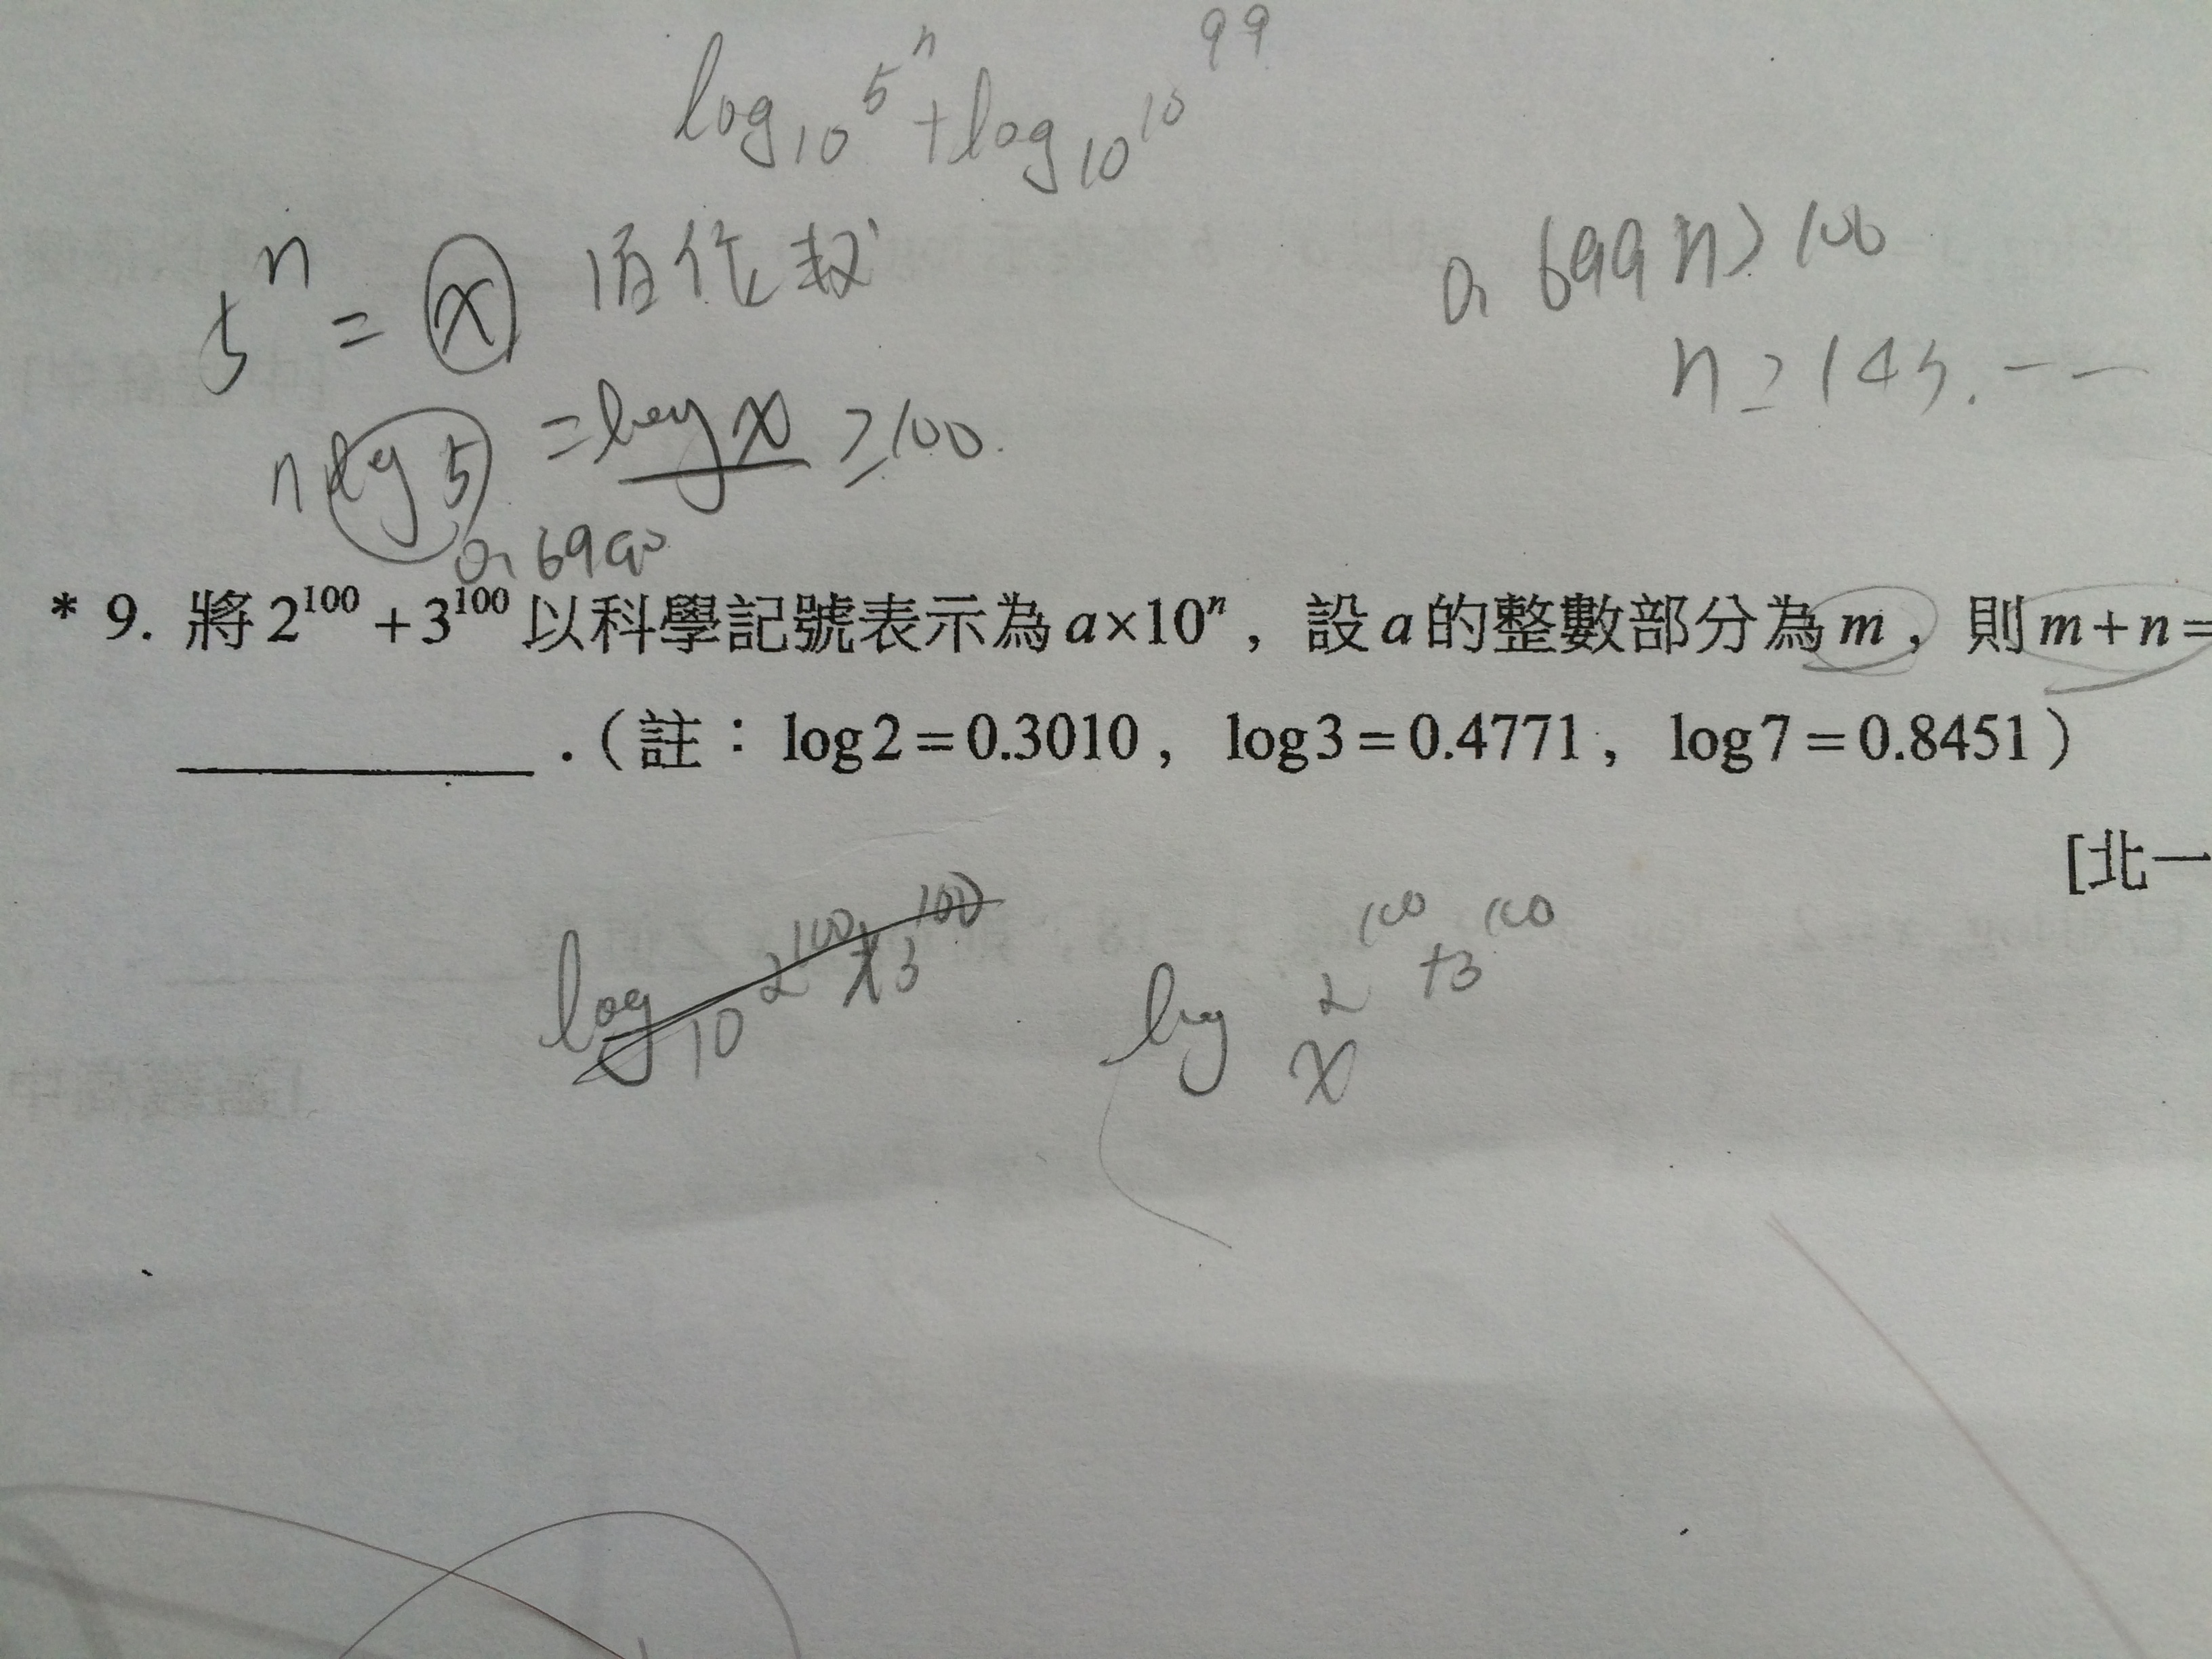 log₁₀ 5ⁿ + log₁₀ 10⁹⁹
5ⁿ = x
0.699n > 100
n ≥ 143.---
n log 5 = log x ≥ 100.
0.6990
* 9. 將 2¹⁰⁰ + 3¹⁰⁰ 以科學記號表示為 a×10ⁿ，設 a 的整數部分為 m，則 m+n=
.（註：log2=0.3010，log3=0.4771，log7=0.8451）
[北一
log₁₀ 2¹⁰⁰ + 3¹⁰⁰
log x 2¹⁰⁰ + 3¹⁰⁰